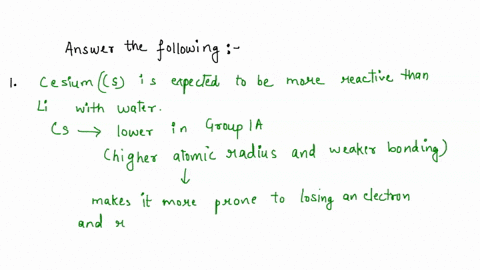 Answer the following :-
1. Cesium (Cs) is expected to be more reactive than
Li with water.
Cs → lower in Group 1A
(higher atomic radius and weaker bonding)
↓
makes it more prone to losing an electron
and r